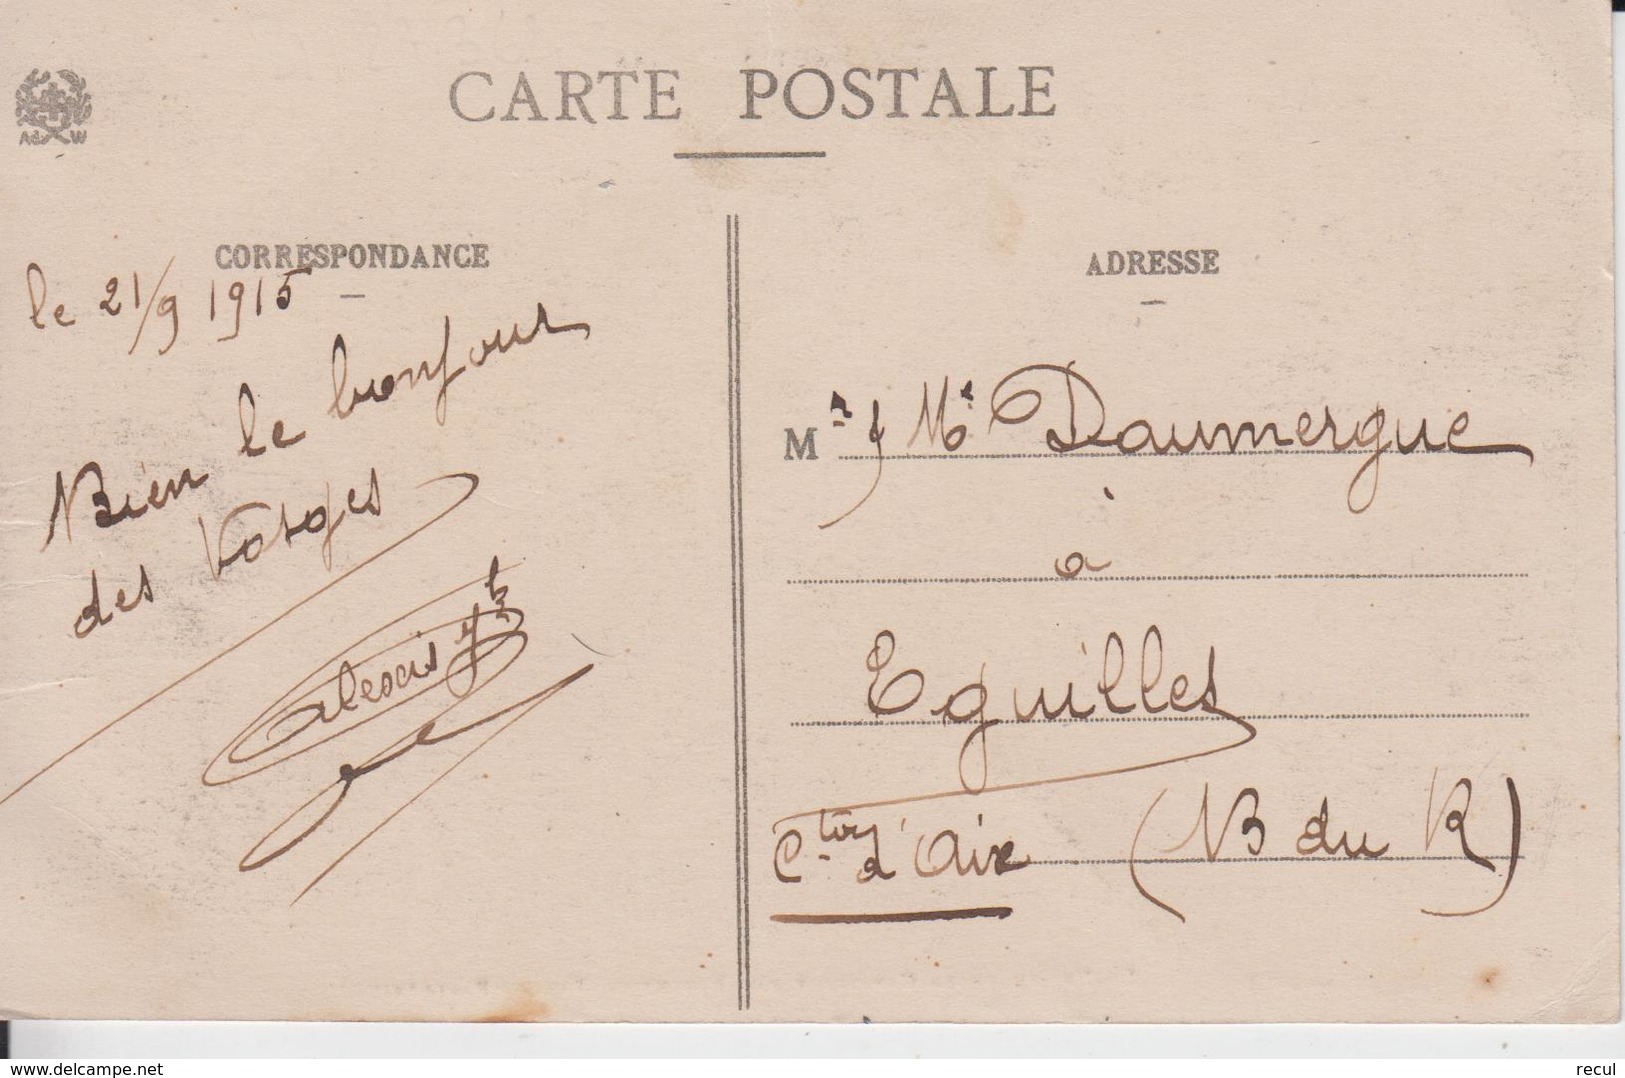 CARTE POSTALE
Ad W
CORRESPONDANCE
le 21/9 1915
Bien le bonjour
des Vosges
alexis
ADRESSE
Mr & Me Daumergue
à
Eguilles
Cton d'Aix (B du R)
www.delcampe.net
recul